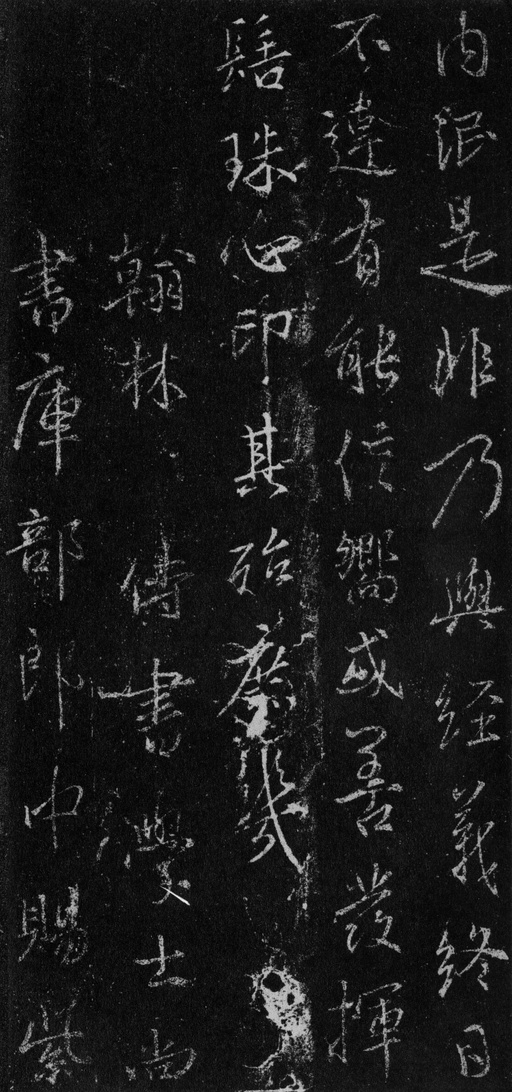 內泯是非乃與經義終日
不違有能信嚮或善發揮
髻珠心印其殆庶幾
翰林侍書學士尚
書庫部郎中賜紫